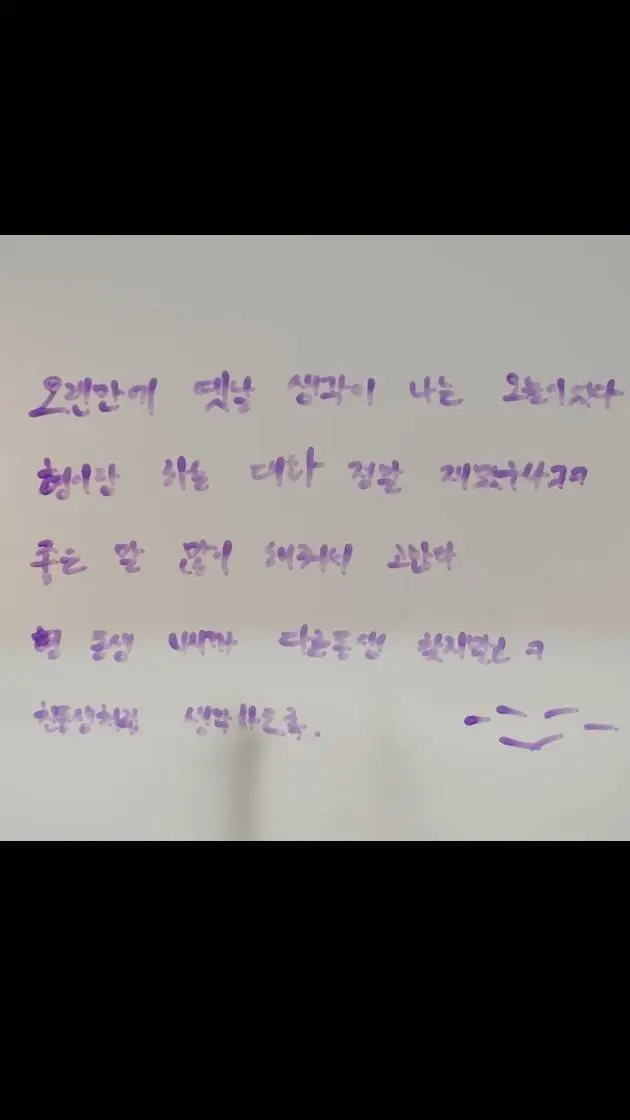 오랜만에 옛날 생각이 나는 오늘이었다
형이랑 하는 대화 정말 재밌구나ㅋㅋ
좋은 말 많이 해줘서 고맙다
형 동생 다른동생 ㅋ
친동생처럼 생각하도록.